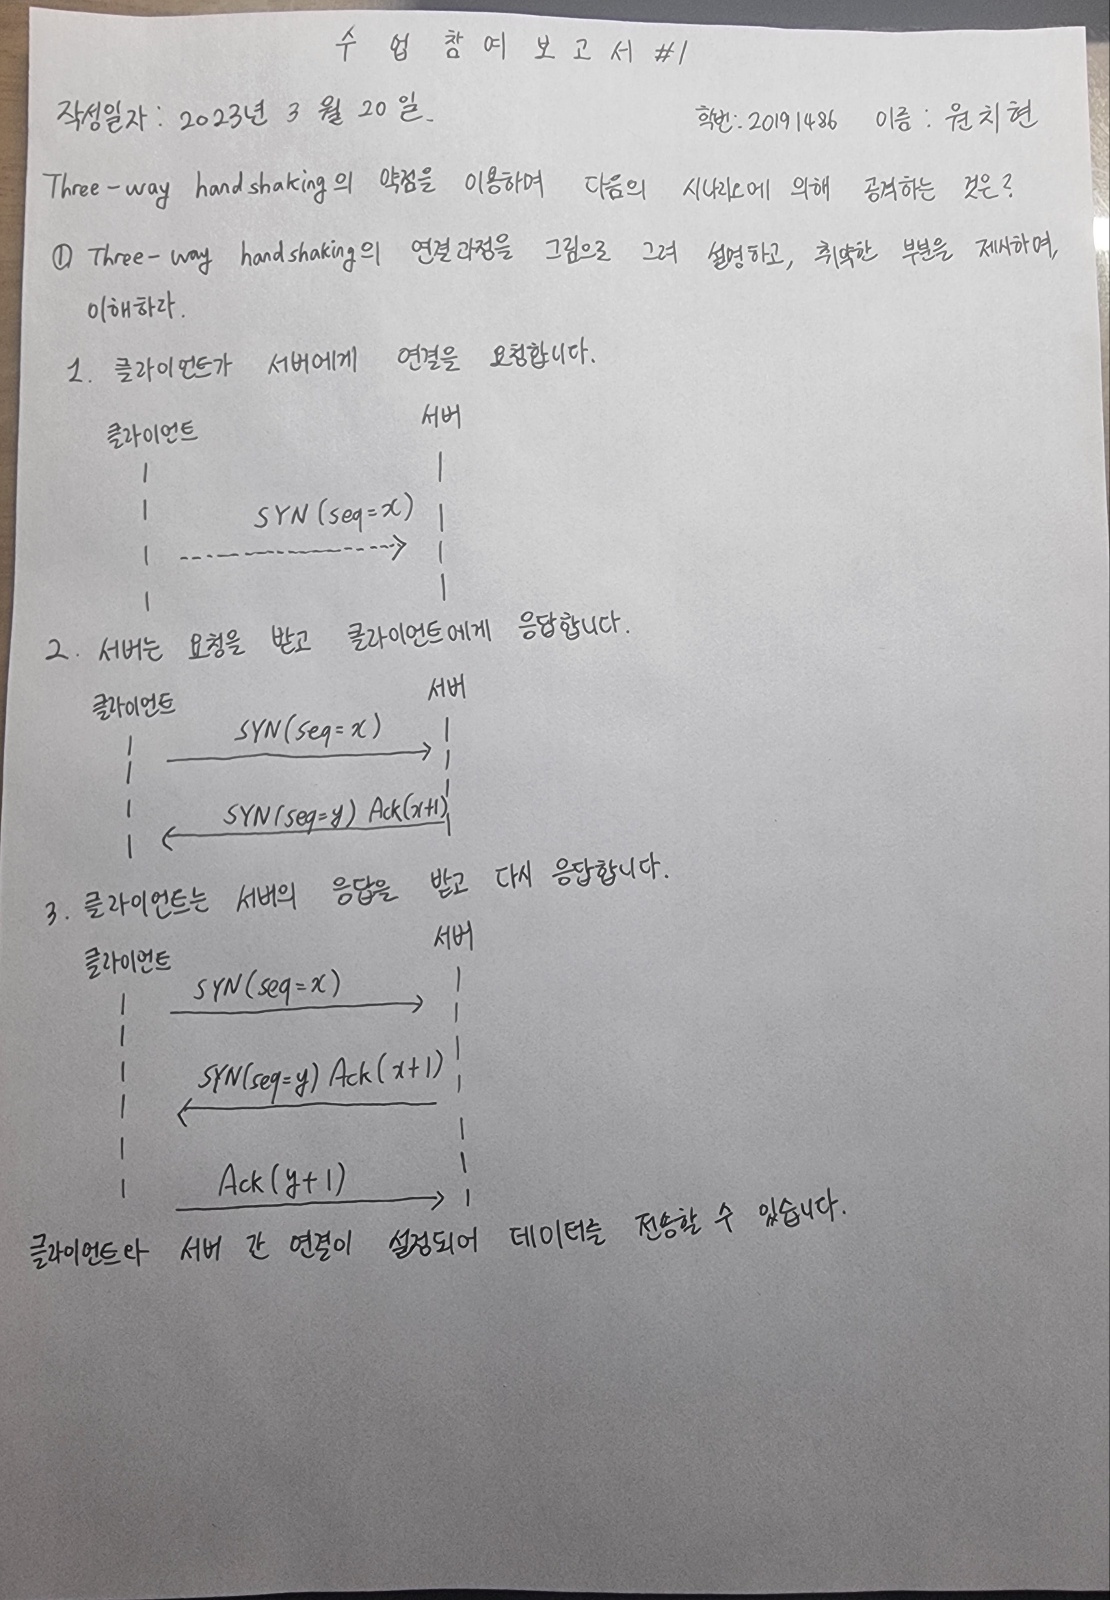 수 업 참 여 보 고 서 #1
작성일자 : 2023년 3 월 20 일.
학번: 20191486 이름 : 원치현
Three-way handshaking의 약점을 이용하여 다음의 시나리오에 의해 공격하는 것은?
① Three-way handshaking의 연결과정을 그림으로 그려 설명하고, 취약한 부분을 제시하여,
이해하라.
1. 클라이언트가 서버에게 연결을 요청합니다.
클라이언트 서버
SYN(seq=x)
2. 서버는 요청을 받고 클라이언트에게 응답합니다.
클라이언트 서버
SYN(seq=x)
SYN(seq=y) Ack(x+1)
3. 클라이언트는 서버의 응답을 받고 다시 응답합니다.
클라이언트 서버
SYN(seq=x)
SYN(seq=y) Ack(x+1)
Ack(y+1)
클라이언트와 서버 간 연결이 설정되어 데이터를 전송할 수 있습니다.